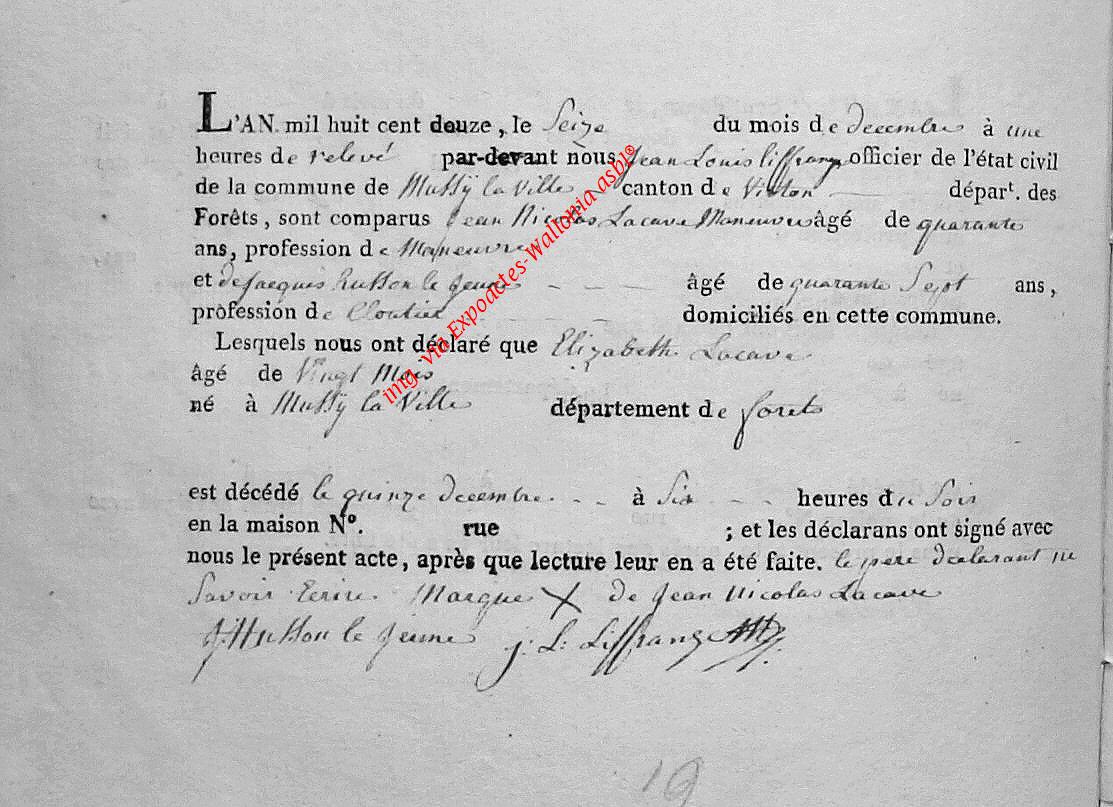 L'AN mil huit cent douze, le Seize du mois de decembre à une
heures de relevé par-devant nous Jean Louis Liffrang officier de l'état civil
de la commune de Mussÿ la Ville canton de Virton départ. des
Forêts, sont comparus Jean Nicolas Lacave Maneuvre âgé de quarante
ans, profession de Maneuvre
et de Jacques husson le jeune âgé de quarante Sept ans,
profession de Cloutier domiciliés en cette commune.
Lesquels nous ont déclaré que Elizabeth Lacave
âgé de Vingt Mois
né à Mussÿ la Ville département de foret
est décédé le quinze decembre à Six heures du Soir
en la maison N°. rue ; et les déclarans ont signé avec
nous le présent acte, après que lecture leur en a été faite. le pere declarant ne
Savoir Ecrire Marque X de Jean Nicolas Lacave
J Husson le jeune j. L. Liffrang
19
img. via Expoactes-Wallonia asbl®